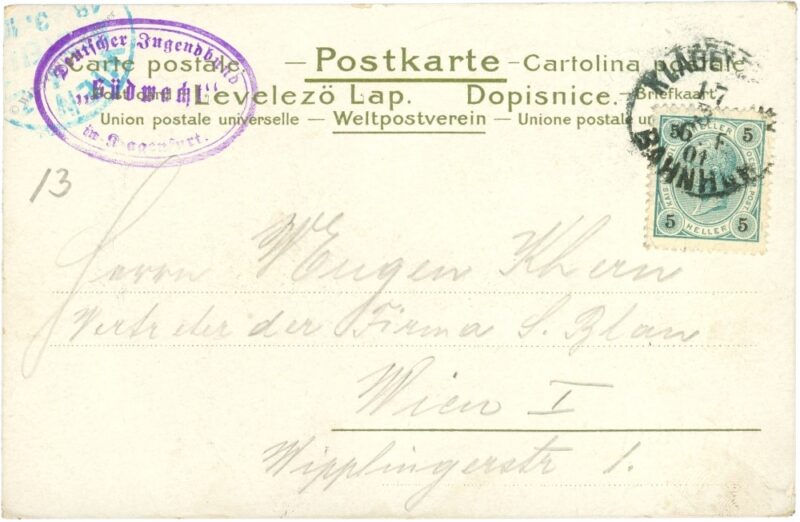 Carte postale — Postkarte — Cartolina postale
Levelező Lap. Dopisnice. — Briefkaart
Union postale universelle — Weltpostverein — Unione postale
Deutscher Jugendbund
„Südmark“
in Klagenfurt.
BAHNHOF
5 5
HELLER
5 5
13
Herrn Eugen Khern
Vertreter der Firma S. Blau
Wien I
Wipplingerstr 1.